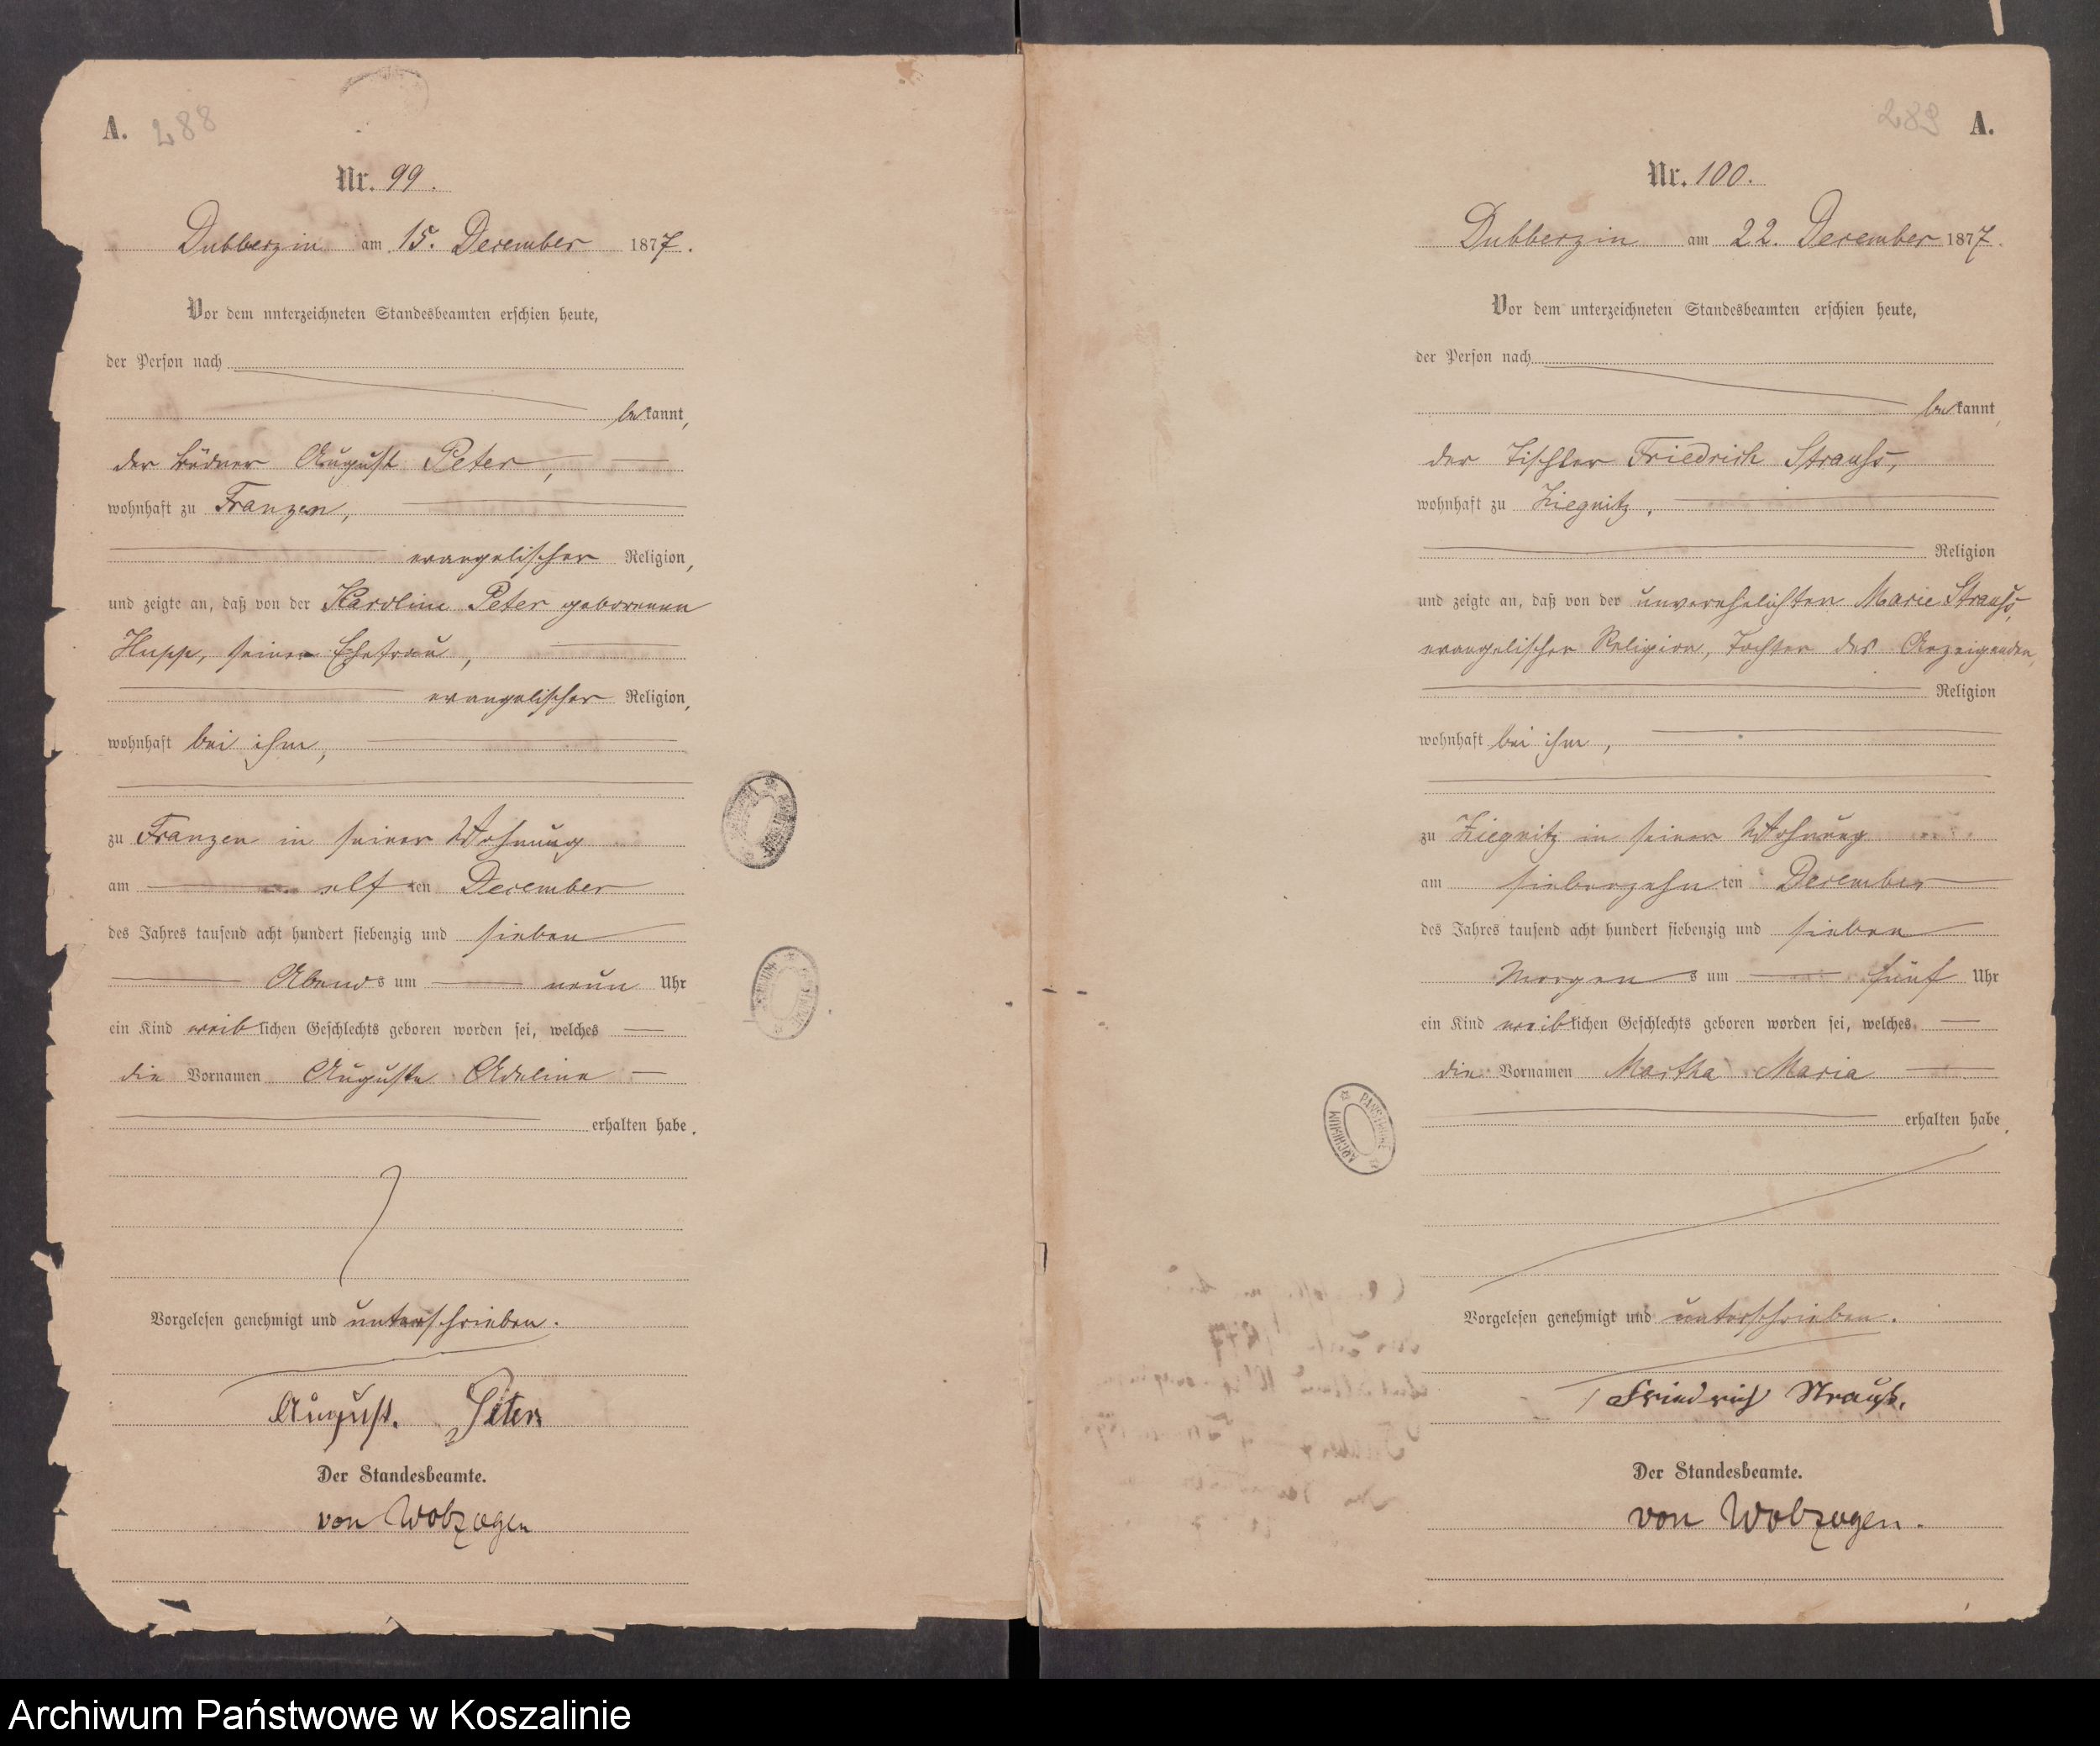 A. 288
Nr. 99.
Dubberzin am 15. December 1877.
Vor dem unterzeichneten Standesbeamten erschien heute,
der Person nach
bekannt,
der Büdner August Peter,
wohnhaft zu Franzen,
evangelischer Religion,
und zeigte an, daß von der Karoline Peter geborenen
Hupp, seiner Ehefrau,
evangelischer Religion,
wohnhaft bei ihm,
zu Franzen in seiner Wohnung
am elf ten December
des Jahres tausend acht hundert siebenzig und sieben
Abends um neun Uhr
ein Kind weiblichen Geschlechts geboren worden sei, welches
die Vornamen Auguste Adeline
erhalten habe.
Vorgelesen genehmigt und unterschrieben.
August. Peter
Der Standesbeamte.
von Wobzogen
289 A.
Nr. 100.
Dubberzin am 22. December 1877.
Vor dem unterzeichneten Standesbeamten erschien heute,
der Person nach
bekannt,
der Tischler Friedrich Strauss,
wohnhaft zu Ziegnitz,
Religion
und zeigte an, daß von der unverehelichten Marie Strauss,
evangelischer Religion, Tochter des Anzeigenden,
Religion
wohnhaft bei ihm,
zu Ziegnitz in seiner Wohnung
am siebenzehn ten December
des Jahres tausend acht hundert siebenzig und sieben
Morgens um fünf Uhr
ein Kind weiblichen Geschlechts geboren worden sei, welches
die Vornamen Martha Maria
erhalten habe.
Vorgelesen genehmigt und unterschrieben.
Friedrich Strauß.
Der Standesbeamte.
von Wobzogen.
ARCHIWUM PAŃSTWOWE
Archiwum Państwowe w Koszalinie